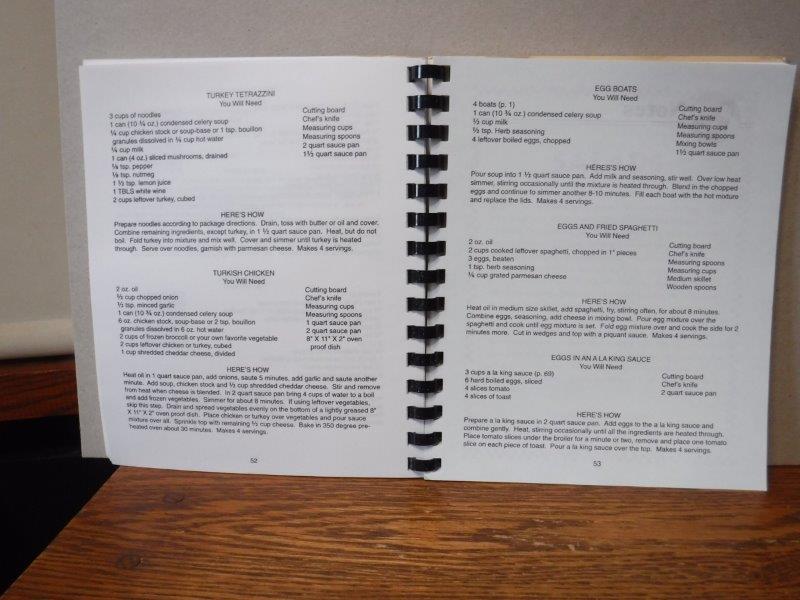 TURKEY TETRAZZINI
You Will Need
3 cups of noodles
1 can (10 ¾ oz.) condensed celery soup
¼ cup chicken stock or soup-base or 1 tsp. bouillon
granules dissolved in ¼ cup hot water
¼ cup milk
1 can (4 oz.) sliced mushrooms, drained
⅛ tsp. pepper
⅛ tsp. nutmeg
1 ½ tsp. lemon juice
1 TBLS white wine
2 cups leftover turkey, cubed
Cutting board
Chef's knife
Measuring cups
Measuring spoons
2 quart sauce pan
1½ quart sauce pan
HERE'S HOW
Prepare noodles according to package directions. Drain, toss with butter or oil and cover.
Combine remaining ingredients, except turkey, in 1 ½ quart sauce pan. Heat, but do not
boil. Fold turkey into mixture and mix well. Cover and simmer until turkey is heated
through. Serve over noodles, garnish with parmesan cheese. Makes 4 servings.
TURKISH CHICKEN
You Will Need
2 oz. oil
½ cup chopped onion
½ tsp. minced garlic
1 can (10 ¾ oz.) condensed celery soup
6 oz. chicken stock, soup-base or 2 tsp. bouillon
granules dissolved in 6 oz. hot water
2 cups of frozen broccoli or your own favorite vegetable
2 cups leftover chicken or turkey, cubed
1 cup shredded cheddar cheese, divided
Cutting board
Chef's knife
Measuring cups
Measuring spoons
1 quart sauce pan
2 quart sauce pan
8" X 11" X 2" oven
proof dish
HERE'S HOW
Heat oil in 1 quart sauce pan, add onions, saute 5 minutes, add garlic and saute another
minute. Add soup, chicken stock and ½ cup shredded cheddar cheese. Stir and remove
from heat when cheese is blended. In 2 quart sauce pan bring 4 cups of water to a boil
and add frozen vegetables. Simmer for about 8 minutes. If using leftover vegetables,
skip this step. Drain and spread vegetables evenly on the bottom of a lightly greased 8"
X 11" X 2" oven proof dish. Place chicken or turkey over vegetables and pour sauce
mixture over all. Sprinkle top with remaining ½ cup cheese. Bake in 350 degree pre-
heated oven about 30 minutes. Makes 4 servings.
52
EGG BOATS
You Will Need
4 boats (p. 1)
1 can (10 ¾ oz.) condensed celery soup
½ cup milk
½ tsp. Herb seasoning
4 leftover boiled eggs, chopped
Cutting board
Chef's knife
Measuring cups
Measuring spoons
Mixing bowls
1½ quart sauce pan
HERES'S HOW
Pour soup into 1 ½ quart sauce pan. Add milk and seasoning, stir well. Over low heat
simmer, stirring occasionally until the mixture is heated through. Blend in the chopped
eggs and continue to simmer another 8-10 minutes. Fill each boat with the hot mixture
and replace the lids. Makes 4 servings.
EGGS AND FRIED SPAGHETTI
You Will Need
2 oz. oil
2 cups cooked leftover spaghetti, chopped in 1" pieces
3 eggs, beaten
1 tsp. herb seasoning
¼ cup grated parmesan cheese
Cutting board
Chef's knife
Measuring spoons
Measuring cups
Medium skillet
Wooden spoons
HERE'S HOW
Heat oil in medium size skillet, add spaghetti, fry, stirring often, for about 8 minutes.
Combine eggs, seasoning, add cheese in mixing bowl. Pour egg mixture over the
spaghetti and cook until egg mixture is set. Fold egg mixture over and cook the side for 2
minutes more. Cut in wedges and top with a piquant sauce. Makes 4 servings.
EGGS IN AN A LA KING SAUCE
You Will Need
3 cups a la king sauce (p. 69)
6 hard boiled eggs, sliced
4 slices tomato
4 slices of toast
Cutting board
Chef's knife
2 quart sauce pan
HERE'S HOW
Prepare a la king sauce in 2 quart sauce pan. Add eggs to the a la king sauce and
combine gently. Heat, stirring occasionally until all the ingredients are heated through.
Place tomato slices under the broiler for a minute or two, remove and place one tomato
slice on each piece of toast. Pour a la king sauce over the top. Makes 4 servings.
53